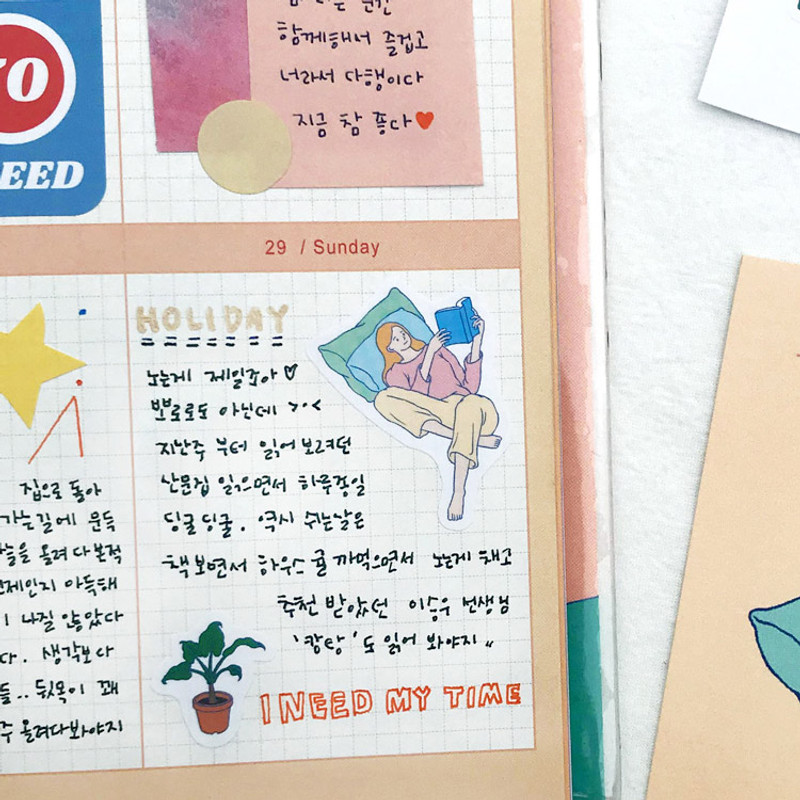 YO
EED
함께해서 즐겁고
너라서 다행이다
지금 참 좋다
29 / Sunday
집으로 돌아
가는길에 문득
하늘을 올려다본적
언제인지 아득해
나질 않았다
다. 생각보다
들.. 뒷목이 꽤
주 올려다봐야지
HOLIDAY
노는게 제일조아♡
뽀로로도 아닌데 >.<
지난주 부터 읽어보려던
산문집 읽으면서 하루종일
딩굴딩굴. 역시 쉬는날은
책보면서 하우스 귤 까먹으면서 노는게 채고
추천 받았던 이승우 선생님
'캉탕'도 읽어 봐야지"
I NEED MY TIME